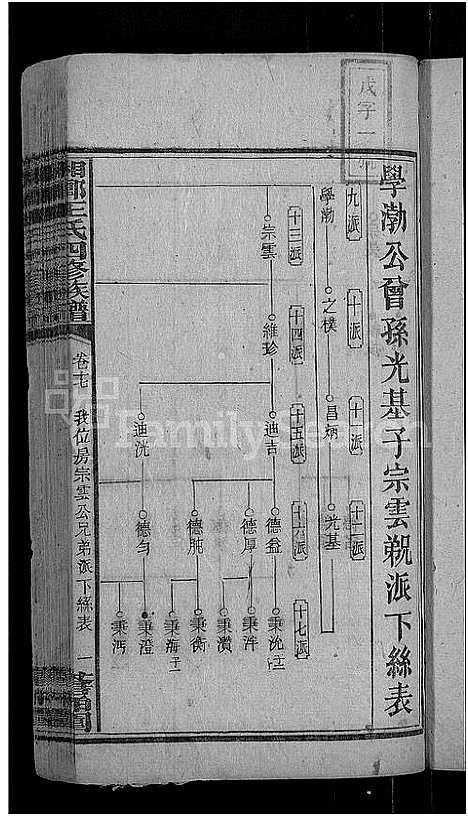 戊字一號
學渤公曾孫光基子宗雲覝派下絲表
九派
十派
十一派
十二派
學渤
之樸
昌炳
光基
十三派
十四派
十五派
十六派
十七派
宗雲
維珍
迪吉
迪洸
德益
德厚
德肫
德勻
秉沈
秉泮
秉瀆
秉衡
秉海
秉澄
秉沔
王氏四修族譜
卷十七
我位房宗雲公兄弟派下絲表
一
FamilySearch